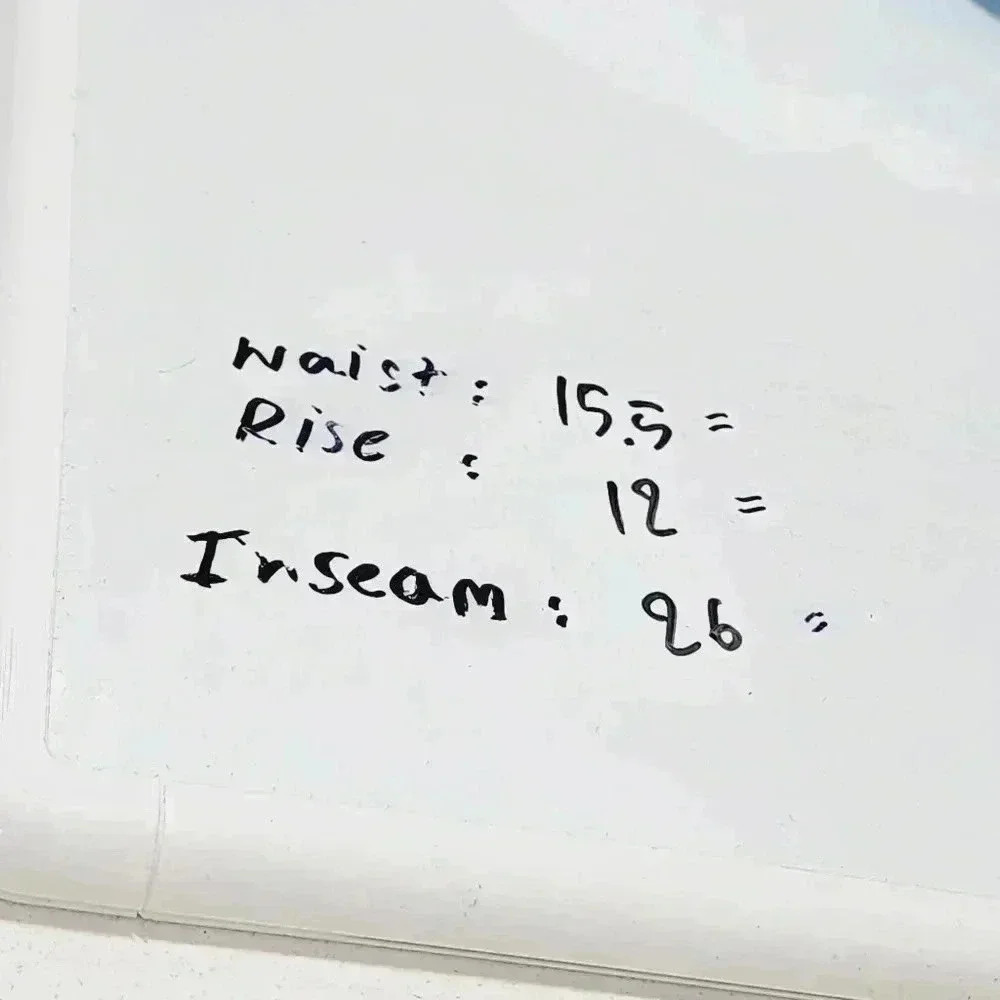 Waist : 15.5 =
Rise : 12 =
Inseam : 26 =